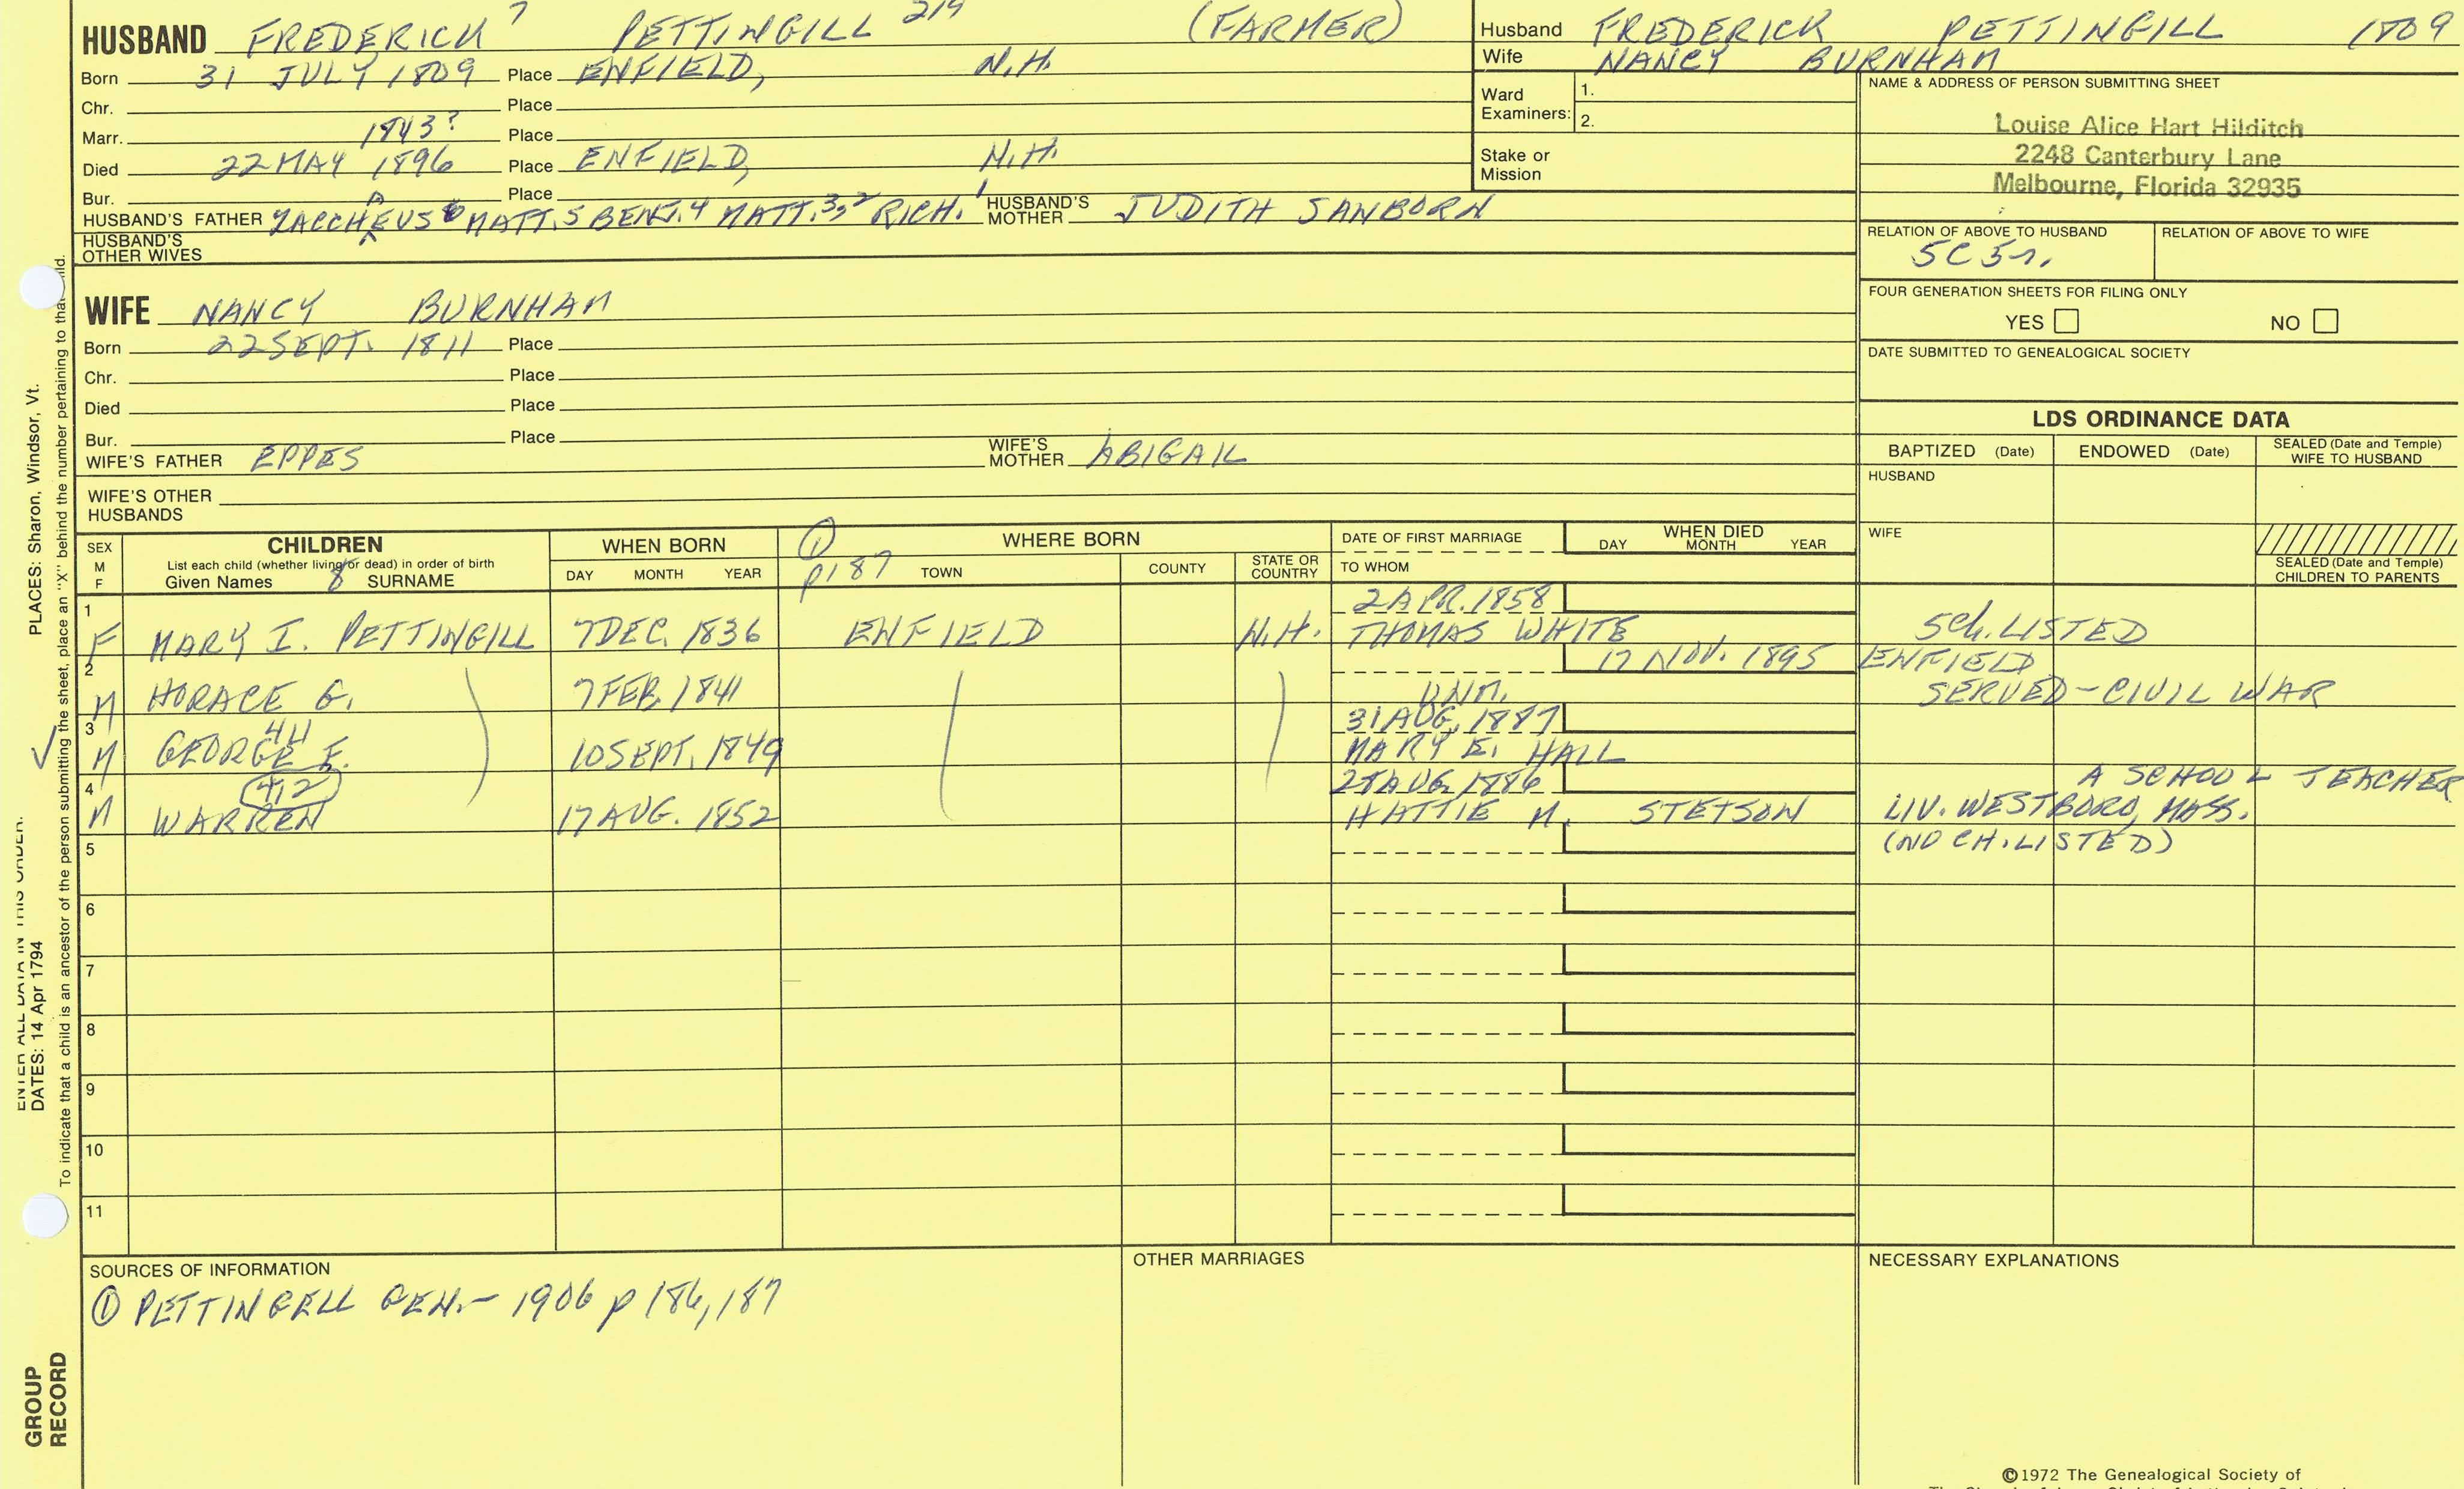 HUSBAND FREDERICK 7 PETTINGILL 219 (FARMER)
Born 31 JULY 1809 Place ENFIELD, N.H.
Chr. Place
Marr. 1843? Place
Died 22 MAY 1896 Place ENFIELD, N.H.
Bur. Place
HUSBAND'S FATHER ZACCHEUS 6 MATT. 5 BENJ. 4 MATT. 3, 2 RICH. 1 HUSBAND'S MOTHER JUDITH SANBORN
HUSBAND'S OTHER WIVES
WIFE NANCY BURNHAM
Born 22 SEPT. 1811 Place
Chr. Place
Died Place
Bur. Place
WIFE'S FATHER EPPES WIFE'S MOTHER ABIGAIL
WIFE'S OTHER HUSBANDS
Husband FREDERICK PETTINGILL 1809
Wife NANCY BURNHAM
Ward Examiners: 1.
2.
Stake or Mission
NAME & ADDRESS OF PERSON SUBMITTING SHEET
Louise Alice Hart Hilditch
2248 Canterbury Lane
Melbourne, Florida 32935
RELATION OF ABOVE TO HUSBAND RELATION OF ABOVE TO WIFE
5C 5r.
FOUR GENERATION SHEETS FOR FILING ONLY
YES NO
DATE SUBMITTED TO GENEALOGICAL SOCIETY
LDS ORDINANCE DATA
BAPTIZED (Date) ENDOWED (Date) SEALED (Date and Temple) WIFE TO HUSBAND
HUSBAND
WIFE
SEALED (Date and Temple) CHILDREN TO PARENTS
SEX M F CHILDREN WHEN BORN ① WHERE BORN DATE OF FIRST MARRIAGE WHEN DIED
List each child (whether living or dead) in order of birth
Given Names 8 SURNAME DAY MONTH YEAR p187 TOWN COUNTY STATE OR COUNTRY TO WHOM DAY MONTH YEAR
1 2 APR. 1858
F MARY I. PETTINGILL 7 DEC. 1836 ENFIELD N.H. THOMAS WHITE 5 ch. LISTED
2 17 NOV. 1895 ENFIELD
M HORACE G. 7 FEB. 1841 UNM. SERVED-CIVIL WAR
3 411 31 AUG. 1887
M GEORGE E. 10 SEPT. 1849 MARY E. HALL
4 412 28 AUG. 1886 A SCHOOL TEACHER
M WARREN 17 AUG. 1852 HATTIE M. STETSON LIV. WESTBORO, MASS.
5 (NO CH. LISTED)
6
7
8
9
10
11
SOURCES OF INFORMATION OTHER MARRIAGES NECESSARY EXPLANATIONS
① PETTINGELL GEN. - 1906 p 186, 187
©1972 The Genealogical Society of
PLACES: Sharon, Windsor, Vt.
ENTER ALL DATA IN THIS ORDER:
DATES: 14 Apr 1794
To indicate that a child is an ancestor of the person submitting the sheet, place an "X" behind the number pertaining to that child.
GROUP RECORD